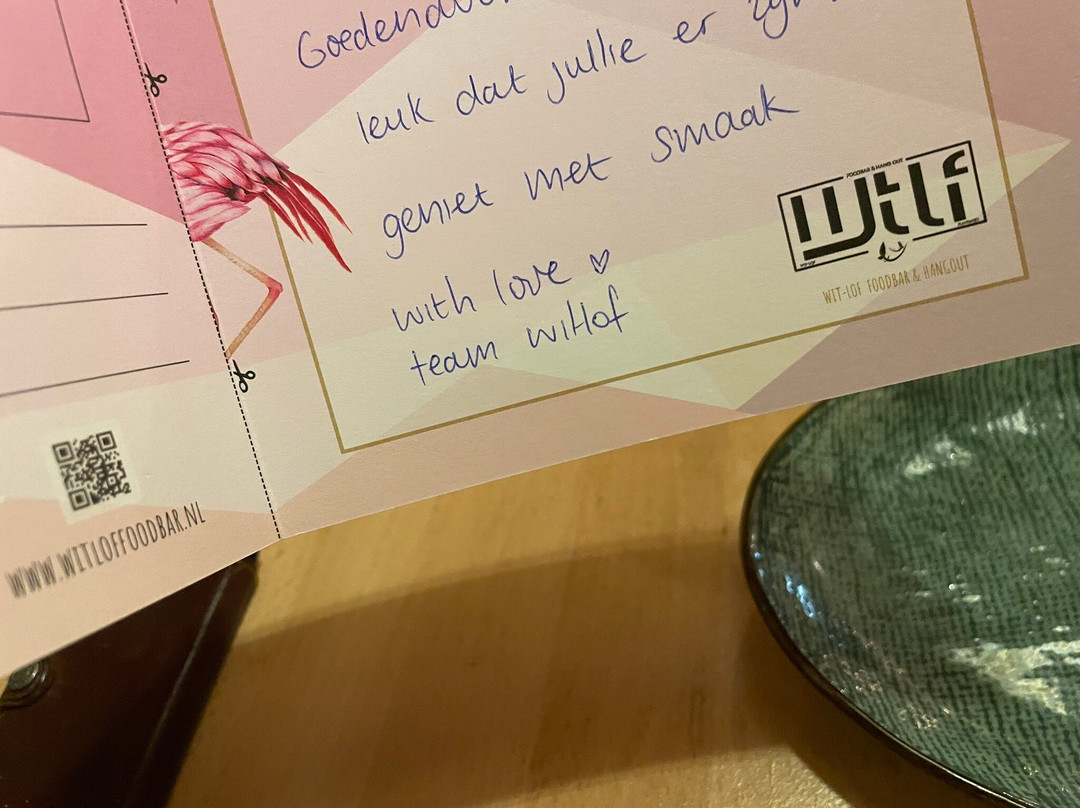 leuk dat jullie er
geniet met smaak
with love ♡
team witlof
FOODBAR & HANG OUT
WTLF
WIT-LOF FOODBAR & HANGOUT
WWW.WITLOFFOODBAR.NL